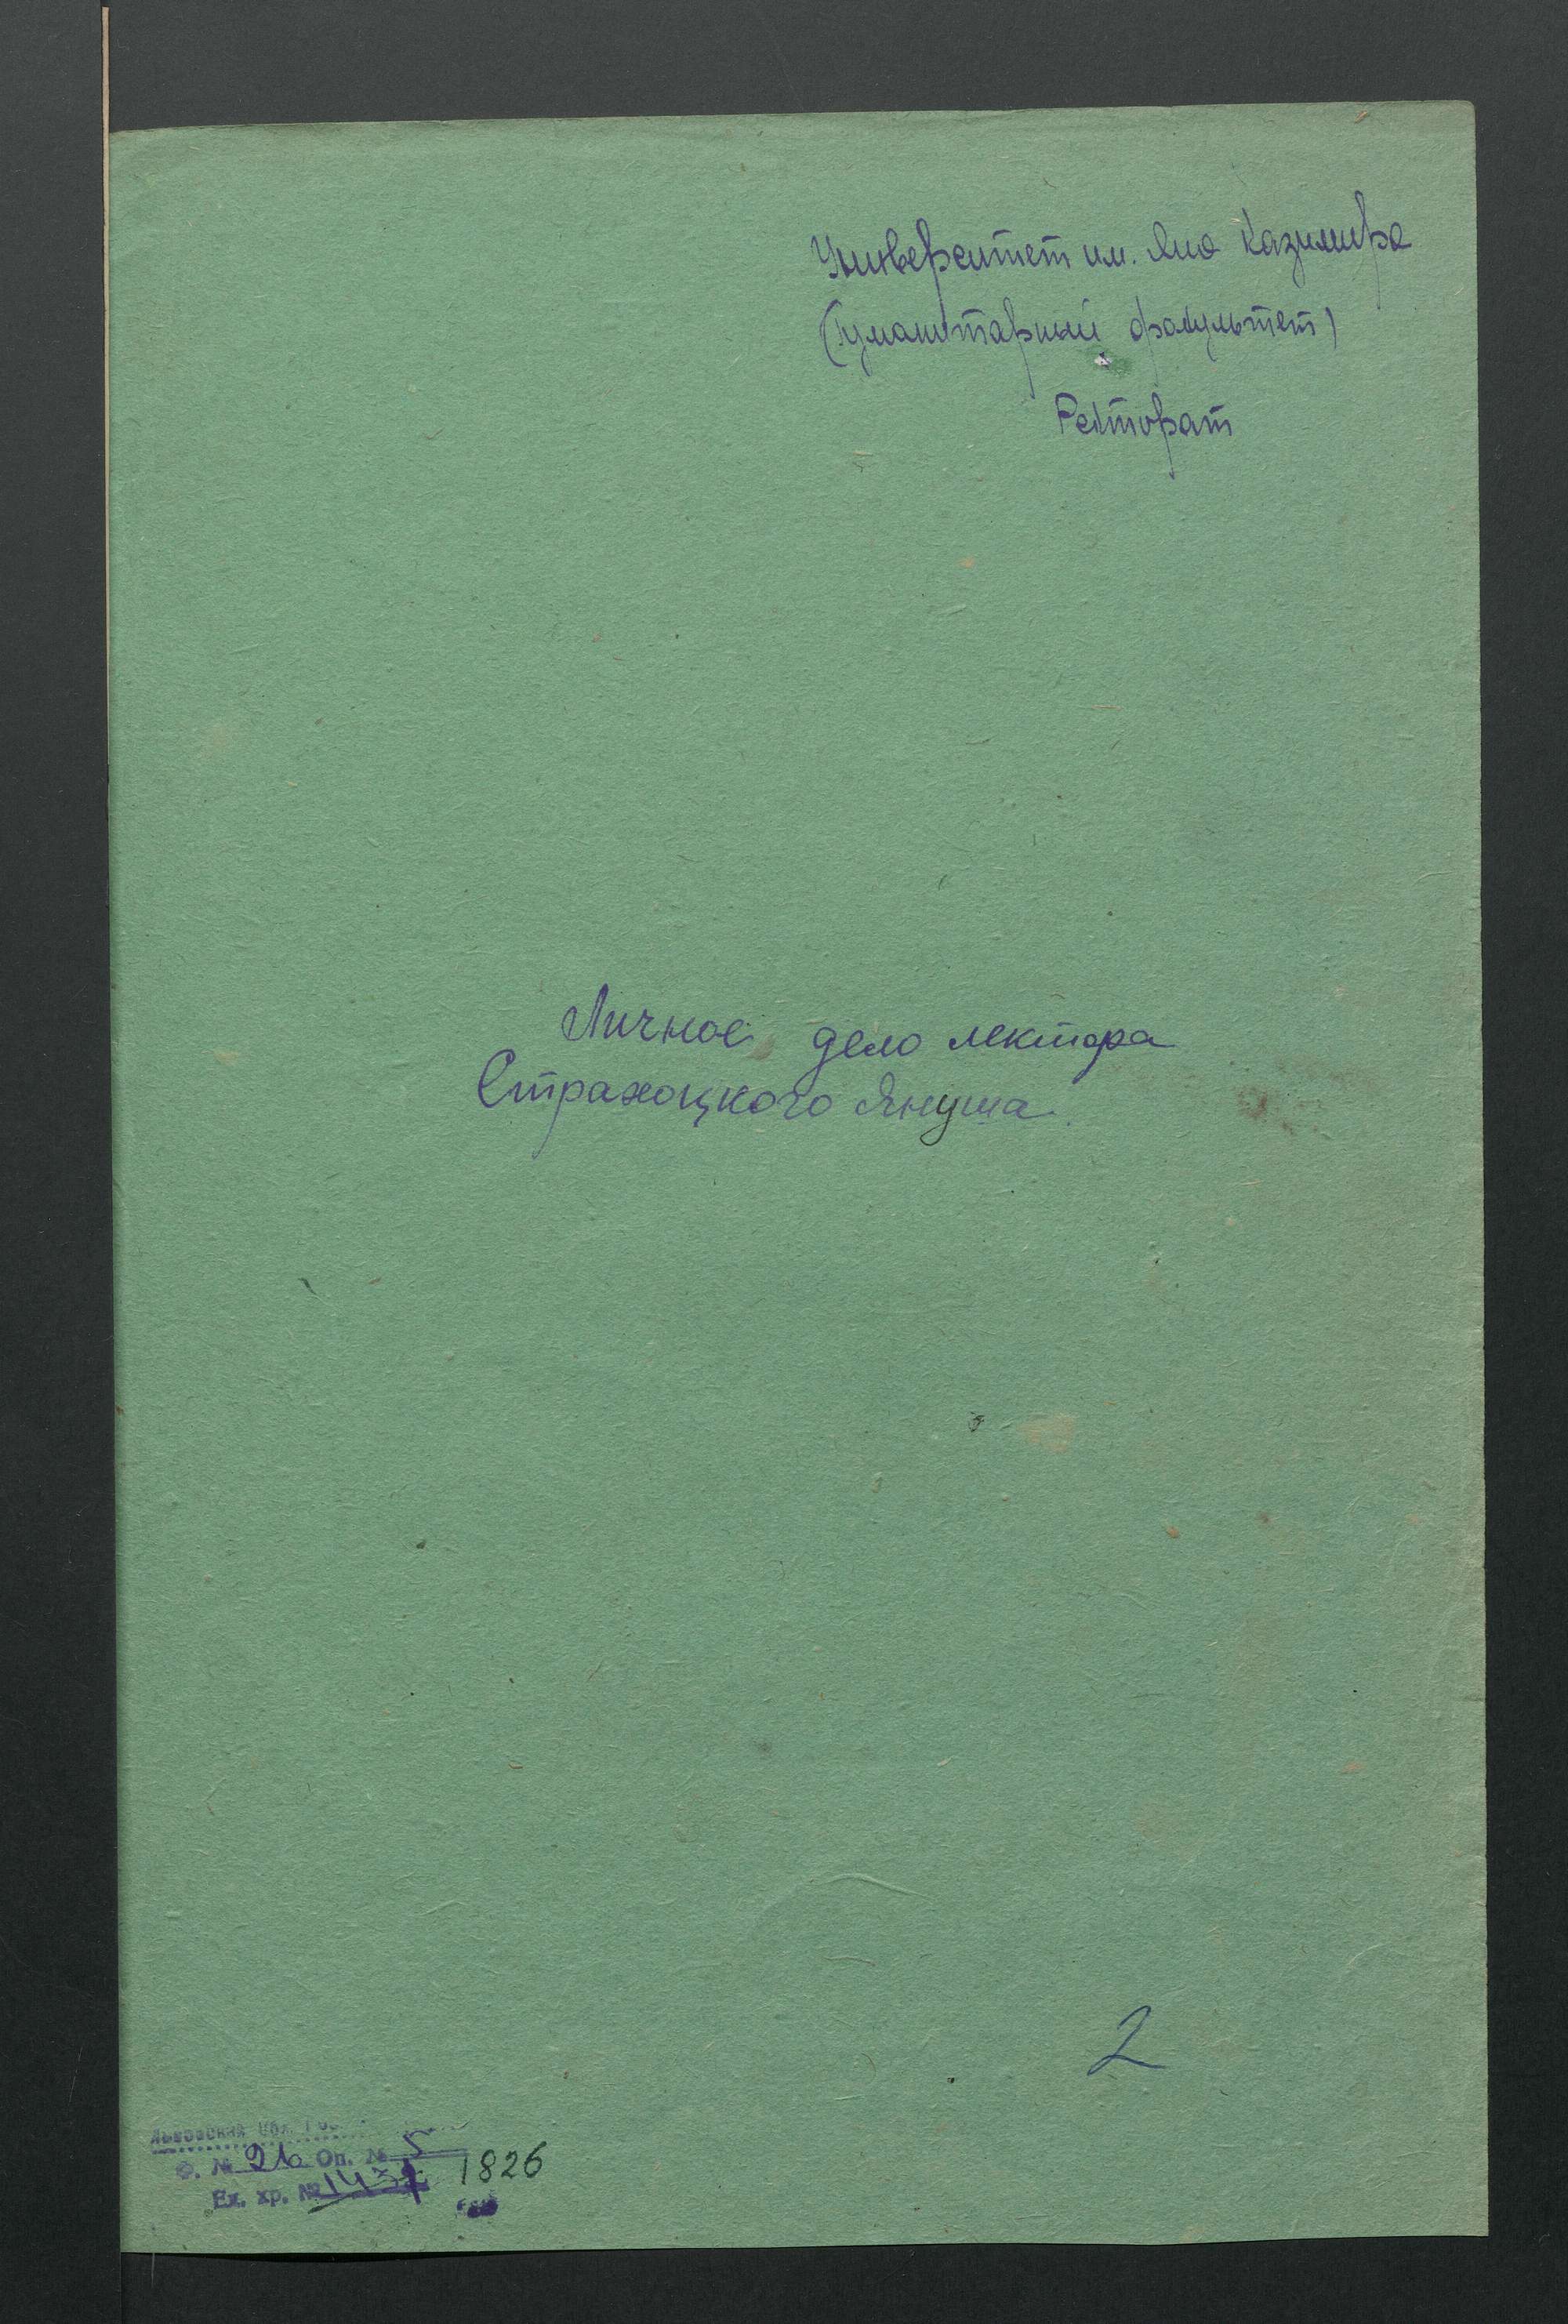 Университет им. Яна Казимира
(Гуманитарный факультет)
Ректорат
Личное дело лектора
Страхоцкого Януша.
2
Львовский Обл. Гос
Ф. № Оп. № 5
Ед. хр. № 1826